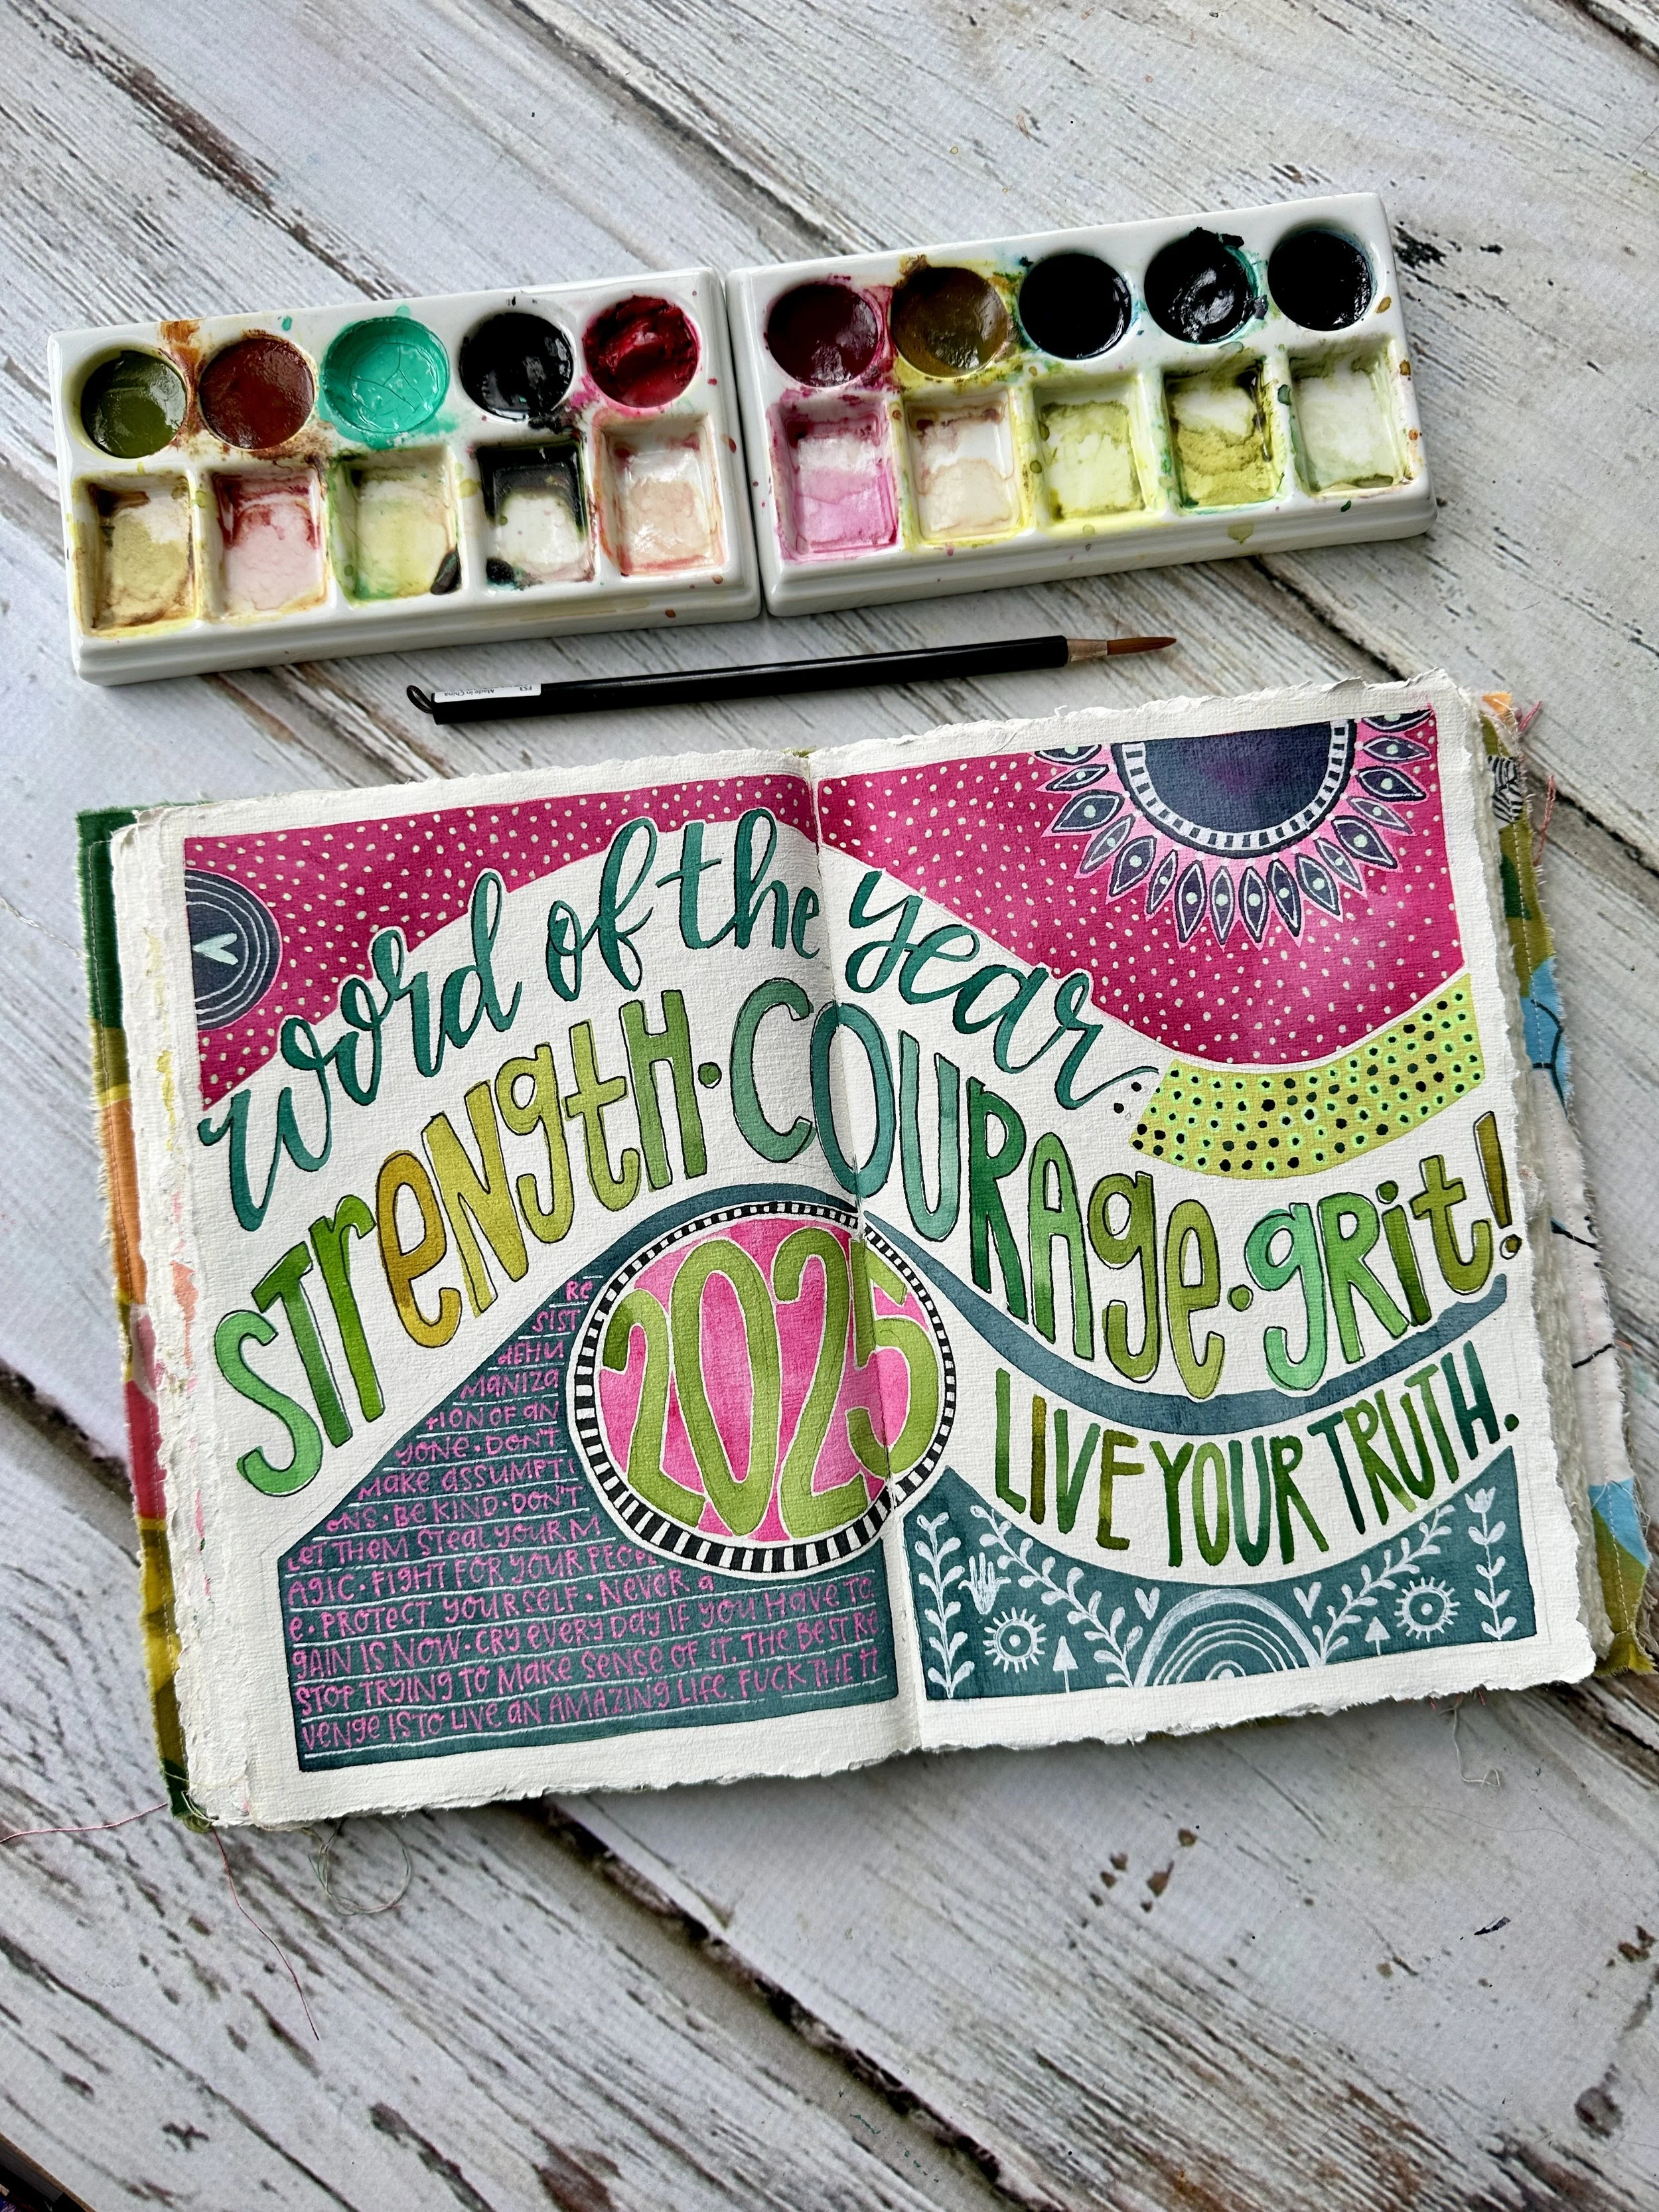 word of the year:
strength · courage · grit!
2025
LIVE YOUR TRUTH.
RE
SIST
dEHU
MANIZA
TION OF AN
YONE · DON'T
MAKE ASSUMPTI
ONS · BE KIND · DON'T
LET THEM STEAL YOUR M
AGIC · FIGHT FOR YOUR PEOPL
E · PROTECT YOURSELF · NEVER A
GAIN IS NOW · CRY EVERY DAY IF YOU HAVE TO.
STOP TRYING TO MAKE SENSE OF IT. THE BEST RE
VENGE IS TO LIVE AN AMAZING LIFE. FUCK THE
Made in China